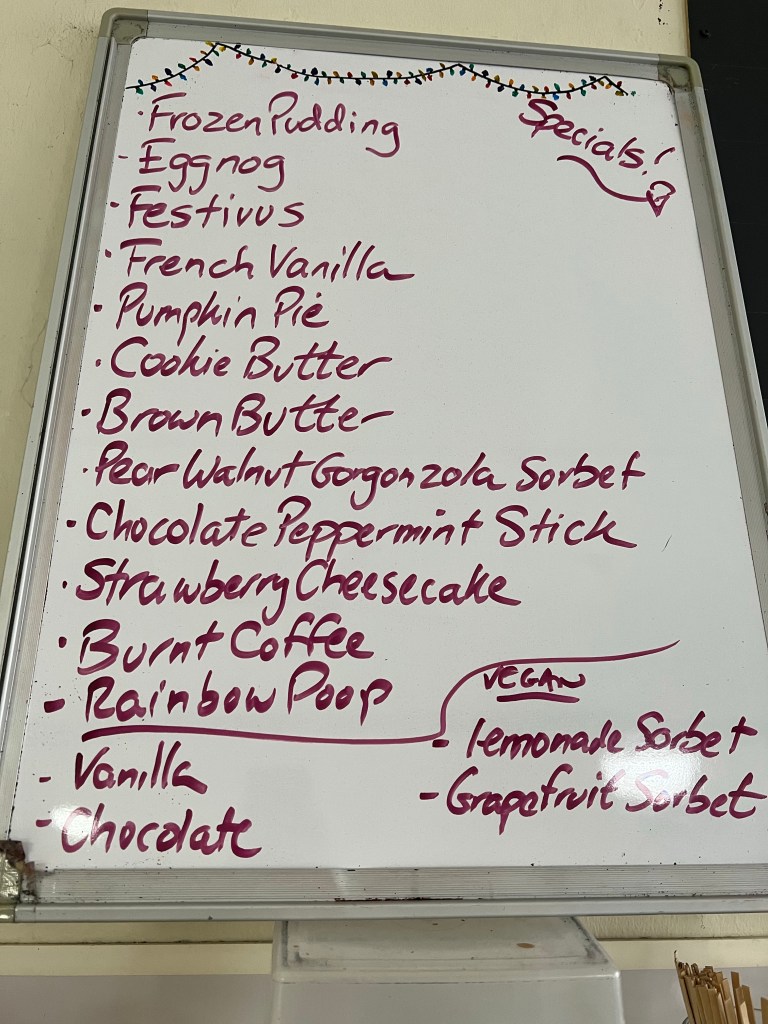 Specials!
· Frozen Pudding
- Eggnog
· Festivus
· French Vanilla
· Pumpkin Pie
· Cookie Butter
· Brown Butter
· Pear Walnut Gorgonzola Sorbet
· Chocolate Peppermint Stick
· Strawberry Cheesecake
· Burnt Coffee
- Rainbow Poop
- Vanilla
- Chocolate
VEGAN
- Lemonade Sorbet
- Grapefruit Sorbet